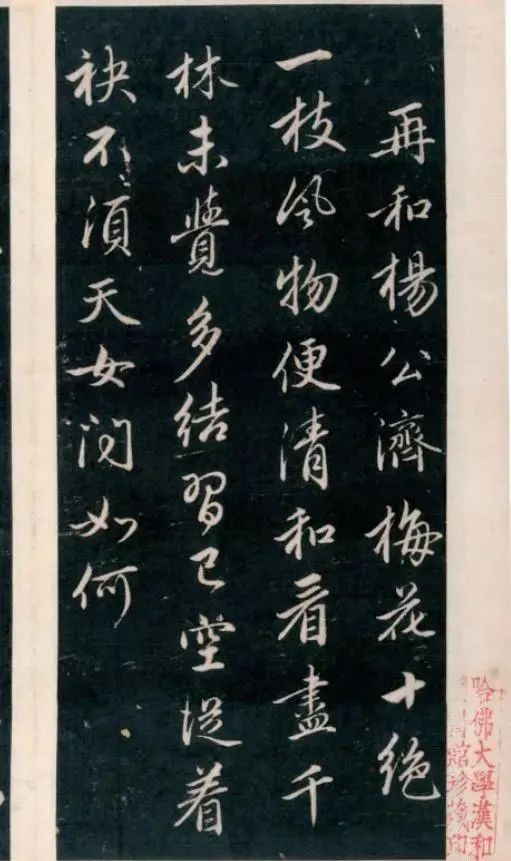 再和楊公濟梅花十絶
一枝風物便清和看盡千
林未覺多結習已空從着
袂不須天女問如何
哈佛大學漢和
圖書館珍藏印